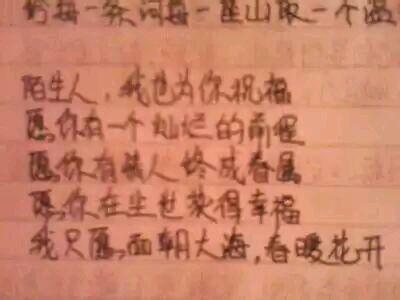 给每一条河每一座山取一个温
陌生人，我也为你祝福
愿你有一个灿烂的前程
愿你有情人终成眷属
愿你在尘世获得幸福
我只愿面朝大海，春暖花开